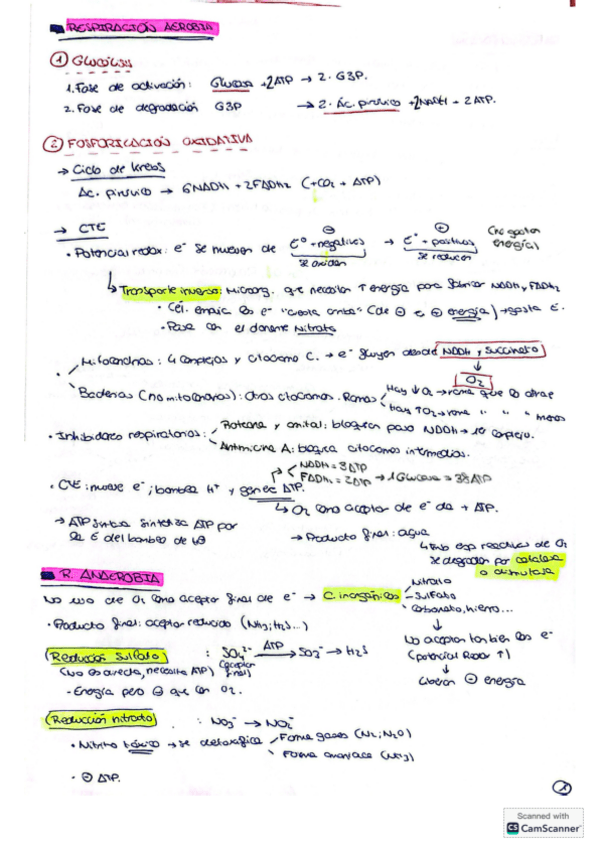 RESPIRACIÓN AEROBIA
① Glucólisis
1. Fase de activación: Glucosa + 2ATP → 2 · G3P.
2. Fase de degradación G3P → 2 · Ác. pirúvico + 2NADH + 2ATP.
② FOSFORILACIÓN OXIDATIVA
→ Ciclo de Krebs
Ác. pirúvico → 6NADH + 2FADH2 (+CO2 + ATP)
→ CTE
• Potencial redox: e⁻ se mueven de E° + negativos → E° + positivos (no gastan energía)
⊖ ⊕
se oxidan se reducen
↳ Transporte inverso: Microorg. que necesitan ↑ energía para NADH y FADH2
• Cél. los e⁻ "cuesta arriba" (de ⊖ a ⊕ energía) → gasta E.
• Pasa con el donante Nitrato
• Mitocondrias: 4 complejos y citocromo C. → e⁻ fluyen desde NADH y Succinato
↓
O2
Bacterias (no mitocondrias): otros citocromos. Ramas
Hay ↓ O2 → rama que lo atrae
Hay ↑ O2 → rama " " " menos
• Inhibidores respiratorios:
Rotenona y amital: bloquean paso NADH → 1er complejo.
Antimicina A: bloquea citocromos intermedios.
• CTE: mueve e⁻; bombea H⁺ y genera ATP.
NADH = 3ATP
FADH2 = 2ATP → 1 Glucosa = 38ATP
↳ O2 como aceptor de e⁻ da + ATP.
→ ATP sintasa sintetiza ATP por la E del bombeo de
→ Producto final: agua
↳ Tiene esp reactivas de O2
se degradan por catalasa
o dismutasa
R. ANAEROBIA
No uso de O2 como aceptor final de e⁻ → C. inorgánicos
Nitrato
Sulfato
Carbonato, hierro...
• Producto final: aceptor reducido (NH3; H2S...)
No aceptan tan bien los e⁻
(potencial Redox ↑)
↓
Liberan ⊖ energía
Reducción sulfato : SO4²⁻ ATP → SO3⁻ → H2S
(No es directa, necesita ATP) (aceptor final)
- Energía pero ⊖ que con O2.
Reducción nitrato : NO3⁻ → NO2⁻
• Nitrito tóxico → se detoxifica
Forma gases (N2; N2O)
Forma amoniaco (NH3)
• ⊖ ATP.
①
Scanned with
CS CamScanner